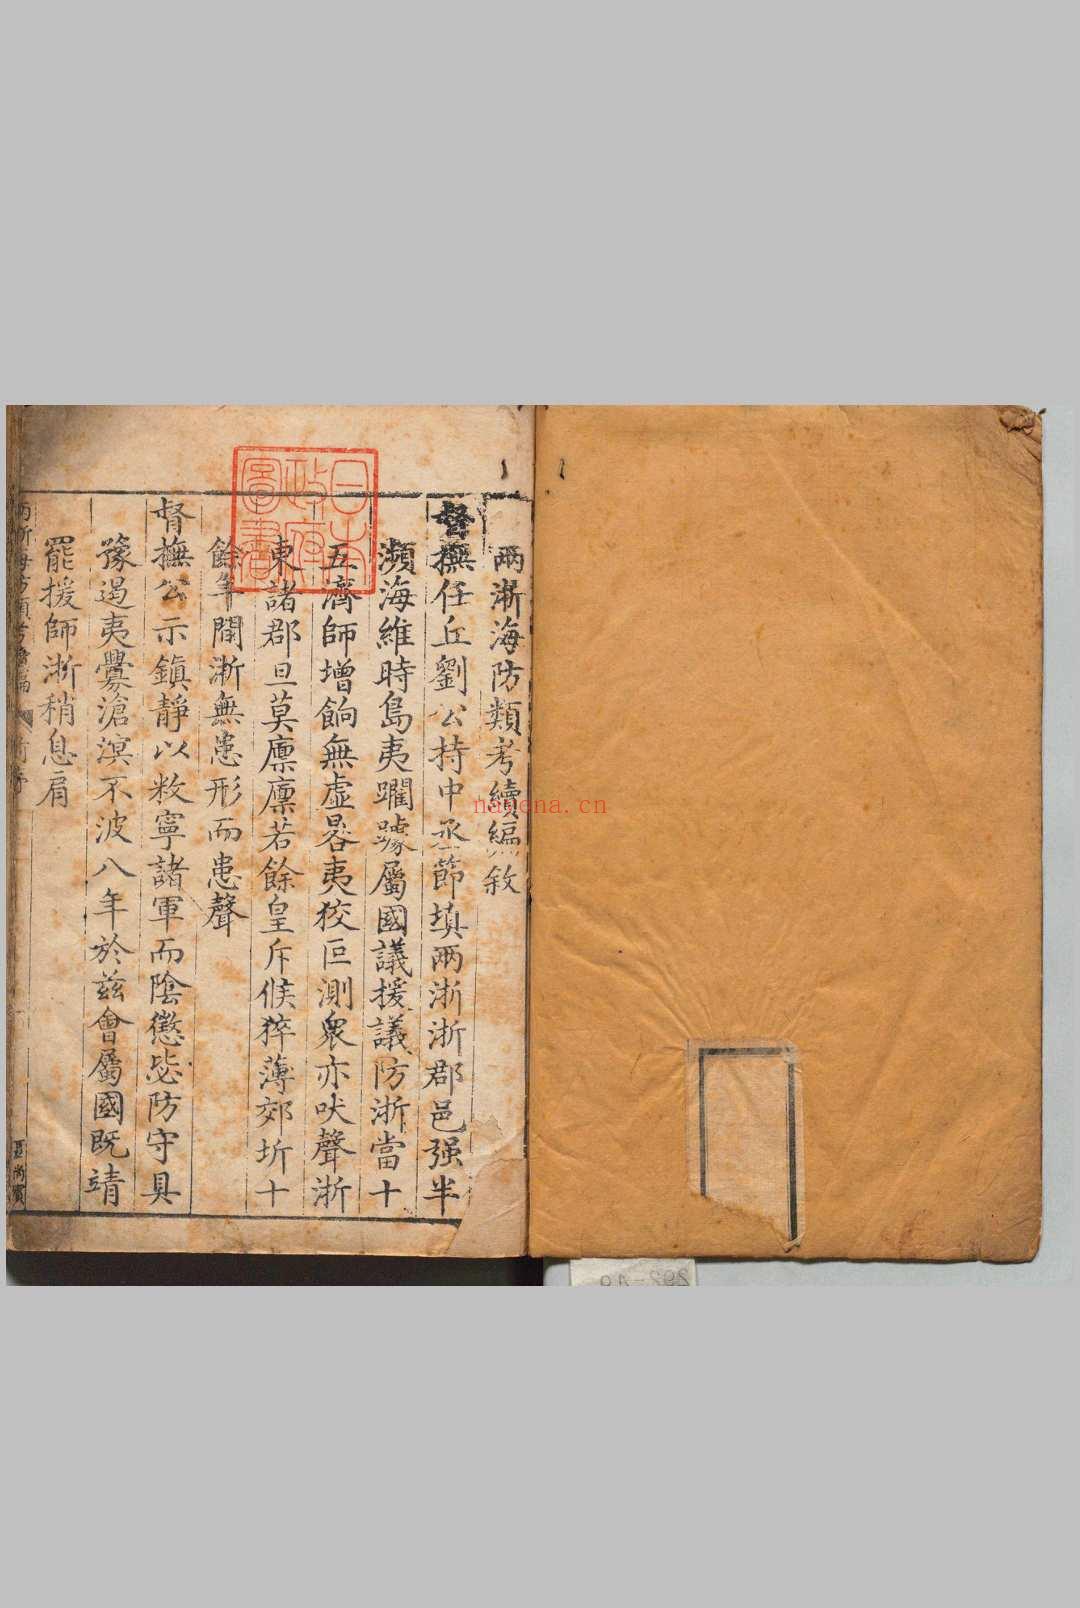 兩浙海防類考續編敘
督撫任丘劉公持中丞節填兩浙浙郡邑强半
瀕海維時島夷躪屬國議援議防浙當十
五濟師增餉無虛晷夷狡叵測衆亦吠聲浙
東諸郡旦莫廩廩若餘皇斥候猝薄郊圻十
餘年間浙無患形而患聲
督撫公示鎮靜以敉寧諸軍而陰懲毖防守具
豫遏夷釁滄溟不波八年於茲會屬國既靖
罷援師浙稍息肩
日本
政府
圖書
nayona.cn
292-49